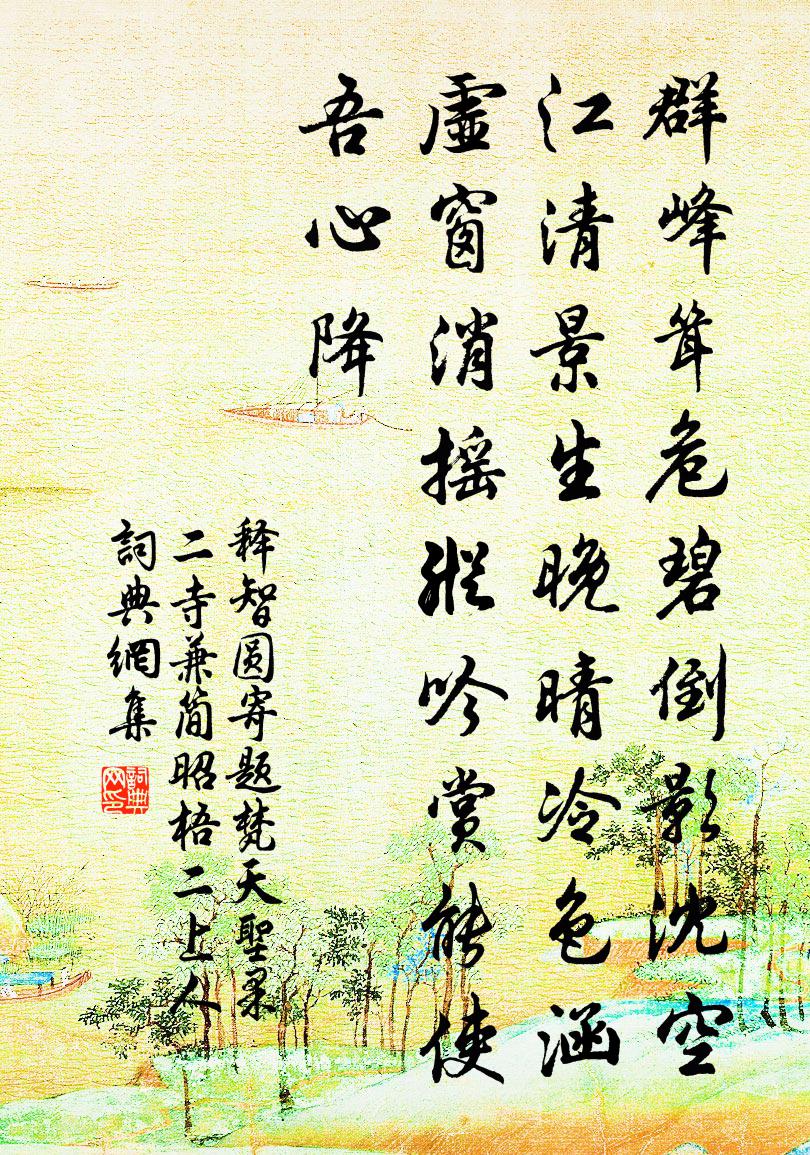 群峰耸危碧倒影沈空
江清景生晚晴冷色涵
虛窗消摇縱吟赏能使
吾心降
释智圆寄题梵天聖果
二寺兼简昭梧二上人
詞典網集
詞典网印